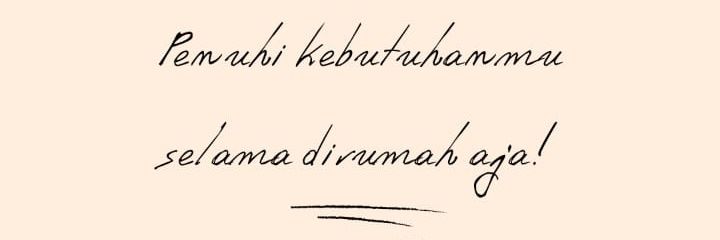 Penuhi kebutuhanmu
selama dirumah aja!